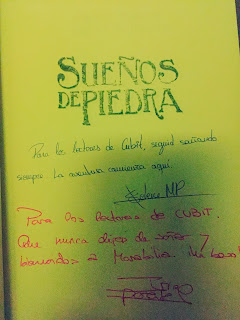 SUEÑOS
DE PIEDRA
Para los lectores de Cubit, seguid soñando
siempre. La aventura comienza aquí.
MP
Para los lectores de CUBIT.
Que nunca dejéis de soñar y
bienvenidos a Marabilia. Un beso!